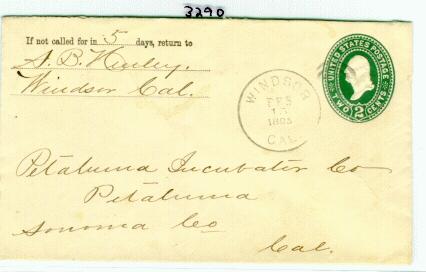 3290
If not called for in 5 days, return to
A. B. Hurley.
Windsor Cal.
WINDSOR
FEB
15
1895
CAL.
UNITED STATES POSTAGE
TWO 2 CENTS
Petaluma Incubator Co
Petaluma
Sonoma Co
Cal.